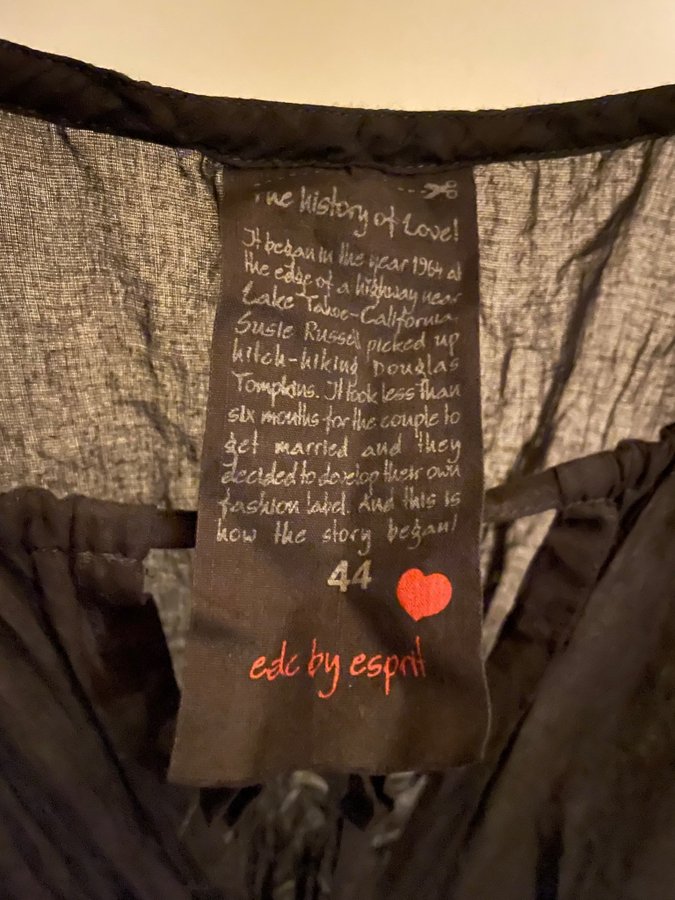 The history of Love!
It began in the year 1964 at
the edge of a highway near
Lake Tahoe-California.
Susie Russel picked up
hitch-hiking Douglas
Tompkins. It took less than
six months for the couple to
get married and they
decided to develop their own
fashion label. And this is
how the story began!
44
edc by esprit